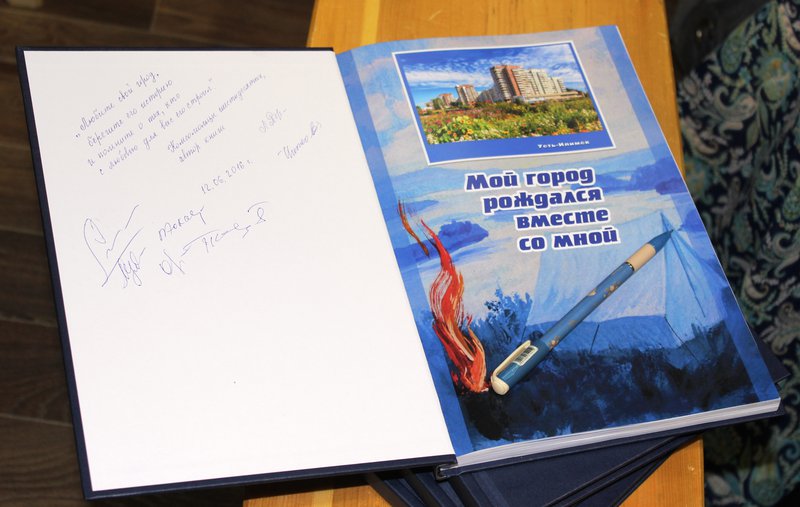 "Любите свой град,
берегите его историю
и помните о тех, кто
с любовью для вас его строил"
Комсомольцы шестидесятых,
автор книги
12.06.2016 г.
Усть-Илимск
Мой город
рождался
вместе
со мной